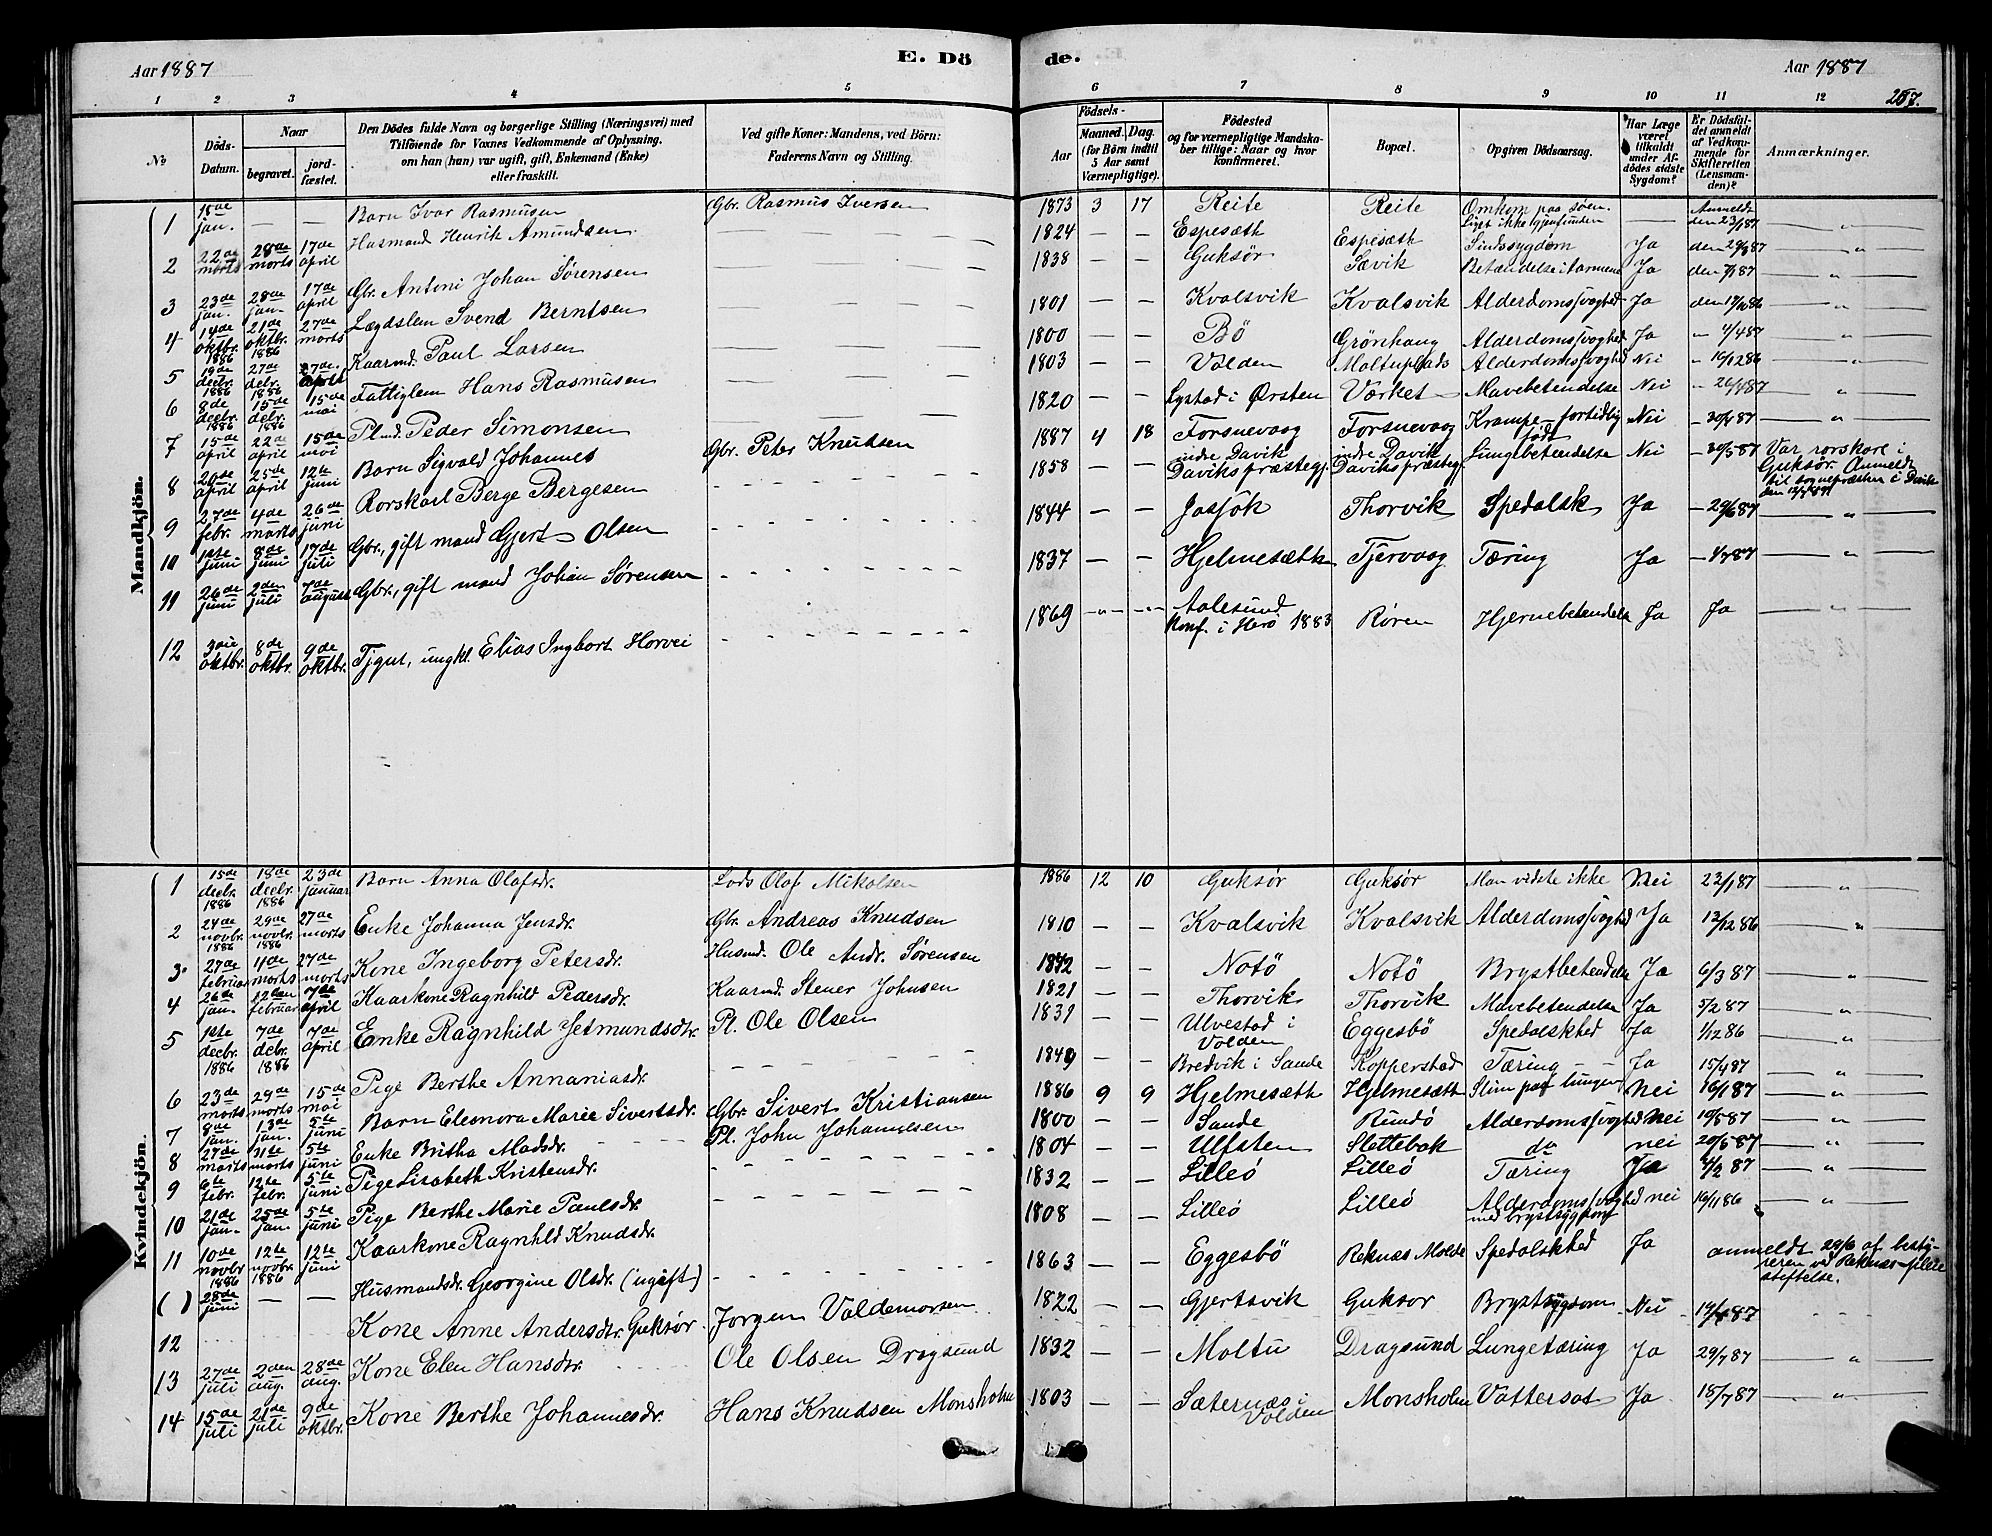 Aar 1887
E. Dö
de.
Aar 1887
257.
1 2 3 4 5
6 7 8 9 10 11 12
No
Döds-
Datum.
Naar
begravet.
jord-
fæstet.
Den Dödes fulde Navn og borgerlige Stilling (Næringsvei) med
Tilföiende for Voxnes Vedkommende af Oplysning,
om han (hun) var ugift, gift, Enkemand (Enke)
eller fraskilt.
Ved gifte Koner: Mandens, ved Börn:
Faderens Navn og Stilling.
Födsels-
Aar
Maaned. Dag.
(for Börn indtil
5 Aar samt
Værnepligtige).
Födested
og for værnepligtige Mandska-
ber tillige: Naar og hvor
konfirmeret.
Bopæl.
Opgiven Dödsaarsag.
Har Læge
været
tilkaldt
under Af-
dödes sidste
Sygdom?
Er Dödsfal-
det anmeldt
af Vedkom-
mende for
Skifteretten
(Lensman-
den)?
Anmærkninger.
Mandkjön.
1 18de jan. — — Barn Ivar Rasmusen Gbr. Rasmus Iversen 1873 3 17 Reite Reite Omkom paa søen. Liget ikke gjenfunden — Anmeldt den 23/1 87 — „ —
2 22de marts 28de marts 17de april Husmand Henrik Amundsen 1824 — — Espesæth Espesæth Sindssygdom Ja — „ —
3 23de jan. 28de jan. 17de april Gbr. Antoni Johan Sørensen 1838 — — Guksør Sævik Betændelse i tarmene Ja — „ —
4 14de oktbr. 1886 21de oktbr. 1886 27de marts Lægdslem Svend Berntsen 1801 — — Kvalsvik Kvalsvik Alderdomssvaghed Ja — „ —
5 19de decbr. 1886 27de debr. 1886 27de april Kaarmd. Paul Larsen 1800 — — Bö Grönhaug Alderdomssvaghed Ja — 4/4 87 — „ —
6 8de decbr. 1886 15de debr. 1886 15de mai Fattiglem Hans Rasmusen 1803 — — Volden Moltuplads Alderdomssvaghed Nei — 10/12 86 — „ —
7 15de april 22de april 15de mai Plmd. Peder Simonsen 1820 — — Lystad i Ørsten Værket Mavebetendelse Nei — 26/4 87 — „ —
8 20de april 25de april 12te juni Barn Sigvald Johannes Gbr. Peter Knudsen 1887 4 18 Forsnevaag Forsnevaag Krampe — fortidlig født Nei — 30/4 87 — „ —
9 27de febr. 4de marts 26de juni Rorskarl Berge Bergesen 1858 — — indre Davik Daviks præstegj. indre Davik Daviks præstegj. Lungebetendelse Nei — 30/5 87 Var rorskare i
Guksör. Anmeldt
til sognepræsten i Davik
10 1ste juni 8de juni 17de juli Gbr., gift mand Gjert Olsen 1844 — — Jøsök Thorvik Spedalsk Ja — 29/6 87 — „ —
11 26de juni 2den juli 7de august Gbr., gift mand Johan Sørensen 1837 — — Hjelmesæth Tjervaag Tæring Ja — 4/7 87 — „ —
12 3die oktbr. 8de oktbr. 9de oktbr. Tjgut, ungkl. Elias Ingbort Horvei 1869 — „ — — „ — Aalesund Konf. i Herö 1883 Røren Hjernebetendelse Ja Ja — „ —
Kvindekjön.
1 15de decbr. 1886 18de decbr. 1886 23de januar Barn Anna Olafsdr. Lods Olaf Mikalsen 1886 12 10 Guksör Guksör Man vidste ikke Nei 23/1 87 — „ —
2 24de novbr. 1886 29de novbr. 1886 27de marts Enke Johanna Jensdr. Gbr. Andreas Knudsen 1810 — — Kvalsvik Kvalsvik Alderdomssvaghed Ja 13/12 86 — „ —
3 27de februar 4de marts 27de marts Kone Ingeborg Petersdr. Husmd. Ole Andr. Sørensen 1842 — — Notö Notö Brystbetendelse Ja 6/3 87 — „ —
4 26de jan. 12te februar 7de april Kaarkone Ragnhild Pedersdr. Kaarmd. Stener Johnsen 1821 — — Thorvik Thorvik Mavebetendelse Ja 5/2 87 — „ —
5 1ste decbr. 1886 7de debr. 1886 7de april Enke Ragnhild Jetmundsdtr. Pl. Ole Olsen 1831 — — Ulvestad i Volden Eggesbö Spedalskhed Ja 1/12 86 — „ —
6 23de marts 29de marts 15de mai Pige Berthe Annaniasdr. 1849 — — Bredvik i Sande Kopperstad Tæring Ja 15/4 87 — „ —
7 8de jan. 13de jan. 5te juni Barn Eleonora Marie Sivertsdr. Gbr. Sivert Kristiansen 1886 9 9 Hjelmesæth Hjelmesæth Slim paa lungen Nei 16/1 87 — „ —
8 27de marts 31te marts 5te juni Enke Britha Madsdr. Pl. John Johannesen 1800 — — Sande Rundö Alderdomssvaghed Nei 10/5 87 — „ —
9 6te febr. 12te febr. 5te juni Pige Lisabeth Kristensdr. 1804 — — Ulfsten Slettebak do nei 20/5 87 — „ —
10 21de jan. 25de jan. 5te juni Pige Berthe Marie Paulsdr. 1832 — — Lilleö Lilleö Tæring Ja 4/2 87 — „ —
11 10de novbr 1886 12te novbr. 1886 12te juni Kaarkone Ragnhild Knudsdr. 1808 — — Lilleö Lilleö Alderdomssvaghed med brystsygdom nei 16/11 86 — „ —
( ) 28de juni — — Husmandsdr. Georgine Olsdr. (ugift) 1863 — — Eggesbö Reknæs Molde Spedalskhed Ja anmeldt 29/6 af besty-
reren ved Reknæs pleie
stiftelse.
12 Kone Anne Andersdtr. Guksör. Jørgen Valdemarsen 1822 — — Gjertsvik Guksør Brystsygdom Nei
13 27de juli 2den aug. 28de aug. Kone Elen Hansdtr. Ole Olsen Dragsund 1832 — — Moltu Dragsund Lungetæring Ja 29/7 87 — „ —
14 15de juli 21de juli 9de oktbr. Kone Berthe Johannesdr. Hans Knudsen Monsholm 1803 — — Sæternæs i Volden Monsholm Vattersot Ja 18/7 87 — „ —